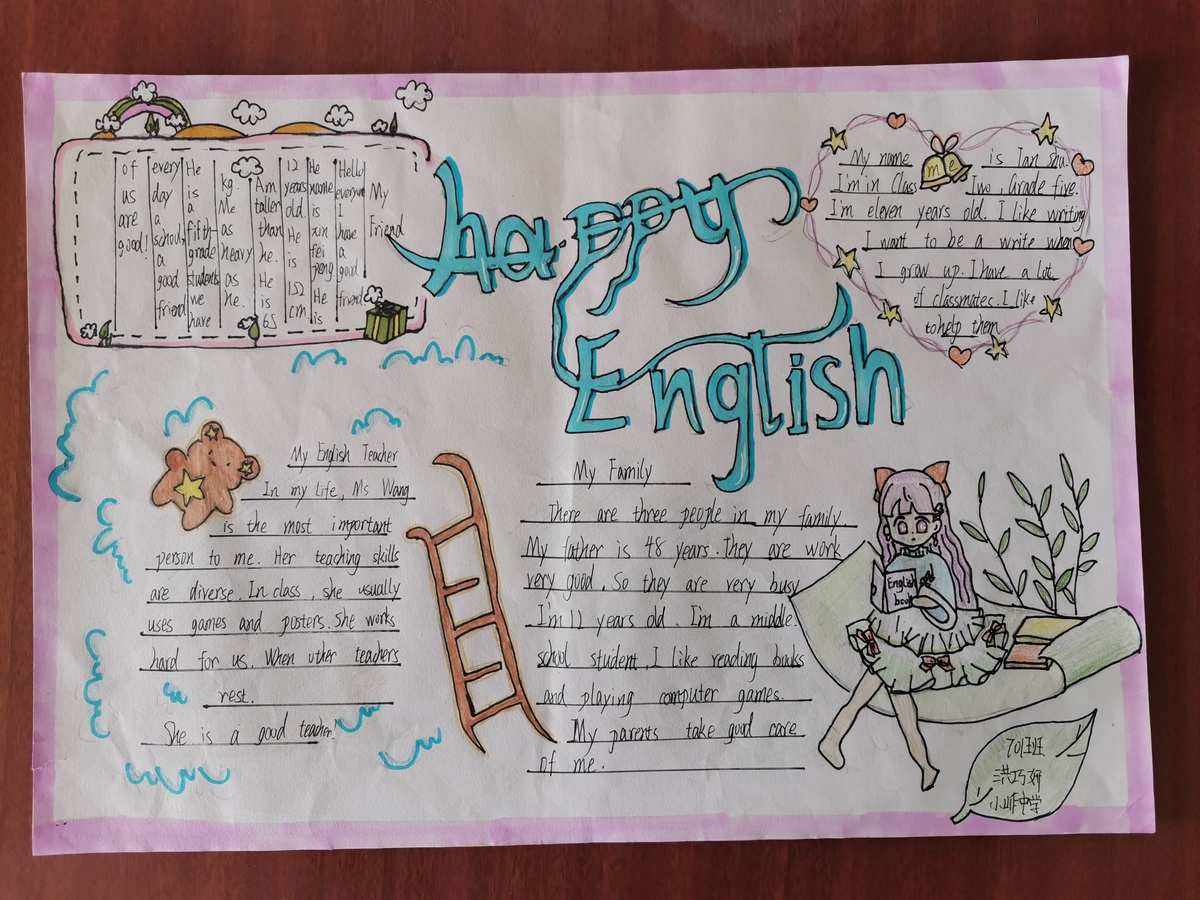 My Friend
Helly everyone I have a good friend
He name is xun fei peng He is
12 years old. He is 152 cm
Am taller than he. He is 65
kg. Me as heavy as he.
He is a fifth-grade students we have
every day a school a good friend
of us are good!
happy
English
My name me is Tan Shu.
I'm in Class Two, Grade five.
I'm eleven years old. I like writing
I want to be a write when
I grow up. I have a lot
of classmates. I like
to help them
My English Teacher
In my life, Ms Wang
is the most important
person to me. Her teaching skills
are diverse. In class, she usually
uses games and posters. She works
hard for us. When other teachers
rest.
She is a good teacher!
My Family
There are three people in my family.
My father is 48 years. They are work
very good. So they are very busy
I'm 12 years old. I'm a middle
school student, I like reading books
and playing computer games.
My parents take good care
of me.
English
book
701班
洪巧妍
中学